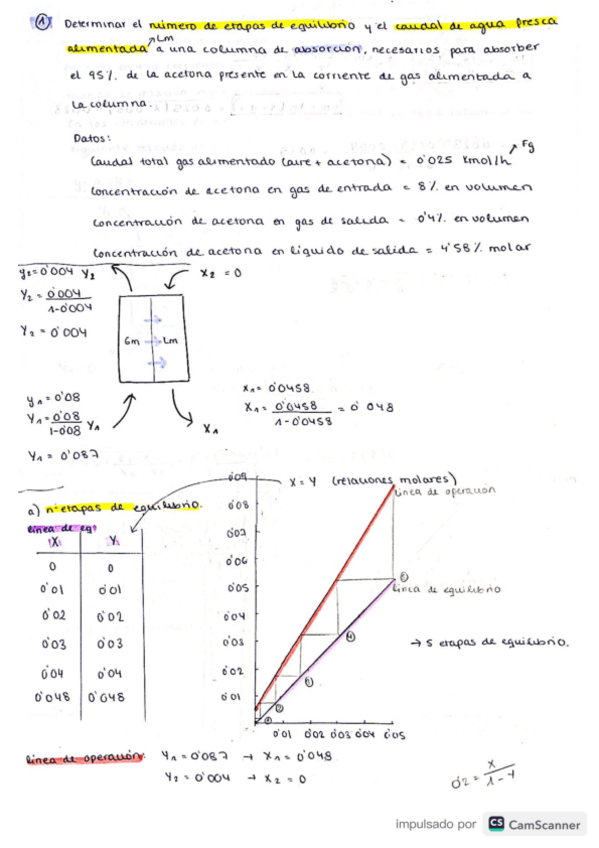 ① Determinar el número de etapas de equilibrio y el caudal de agua fresca
Lm
alimentada a una columna de absorción, necesarios para absorber
el 95% de la acetona presente en la corriente de gas alimentada a
la columna.
Datos:
Fg
Caudal total gas alimentado (aire + acetona) = 0'025 Kmol/h
Concentración de acetona en gas de entrada = 8% en volumen
Concentración de acetona en gas de salida = 0'4% en volumen
Concentración de acetona en líquido de salida = 4'58% molar
y2=0'004 Y2
X2 = 0
Y2 = 0'004 / 1-0'004
Y2 = 0'004
Gm
Lm
y1 = 0'08
x1 = 0'0458
Y1 = 0'08 / 1-0'08
Y1
X1 = 0'0458 / 1-0'0458 = 0'048
X1
Y1 = 0'087
a) nº etapas de equilibrio.
X = Y (relaciones molares)
línea de operación
línea de eq:
X Y
0 0
0'01 0'01
0'02 0'02
0'03 0'03
0'04 0'04
0'048 0'048
0'09
0'08
0'07
0'06
0'05
0'04
0'03
0'02
0'01
0'01 0'02 0'03 0'04 0'05
línea de equilibrio
→ 5 etapas de equilibrio.
línea de operación: Y1 = 0'087 → X1 = 0'048
Y2 = 0'004 → X2 = 0
impulsado por CS CamScanner